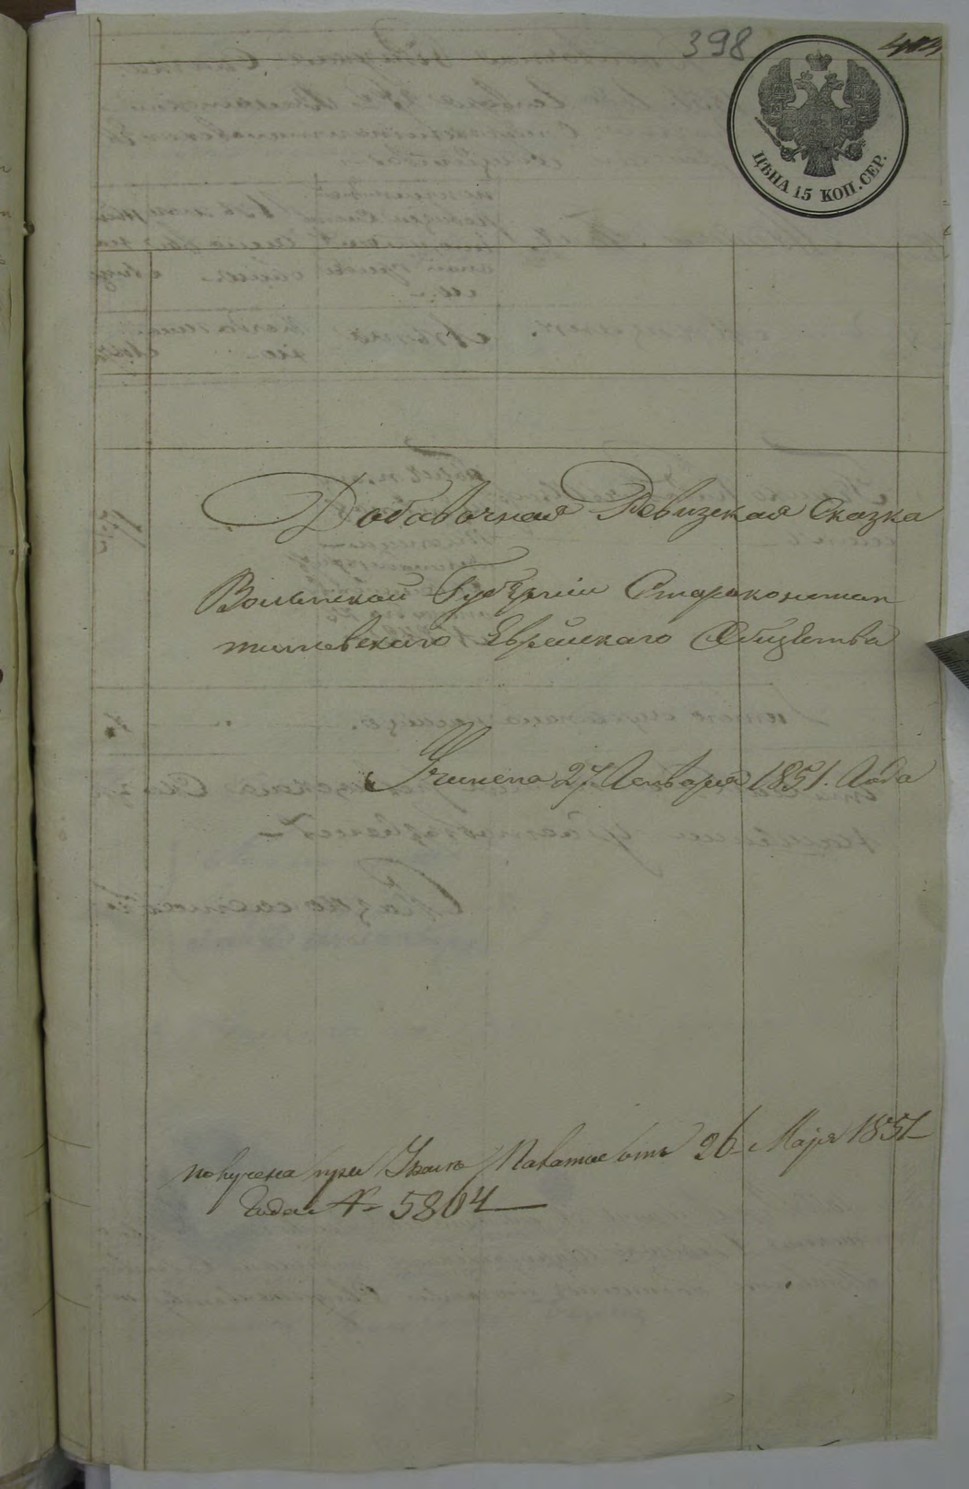 398
ЦѢНА 15 КОП. СЕР.
Добавочная Ревизская Сказка
Волынской Губерніи Староконстан
тиновского Еврейского Общества
Учинена 27 Января 1851. Года
получена при Указе Палаты отъ 26 Мар 1851
Года № 5804